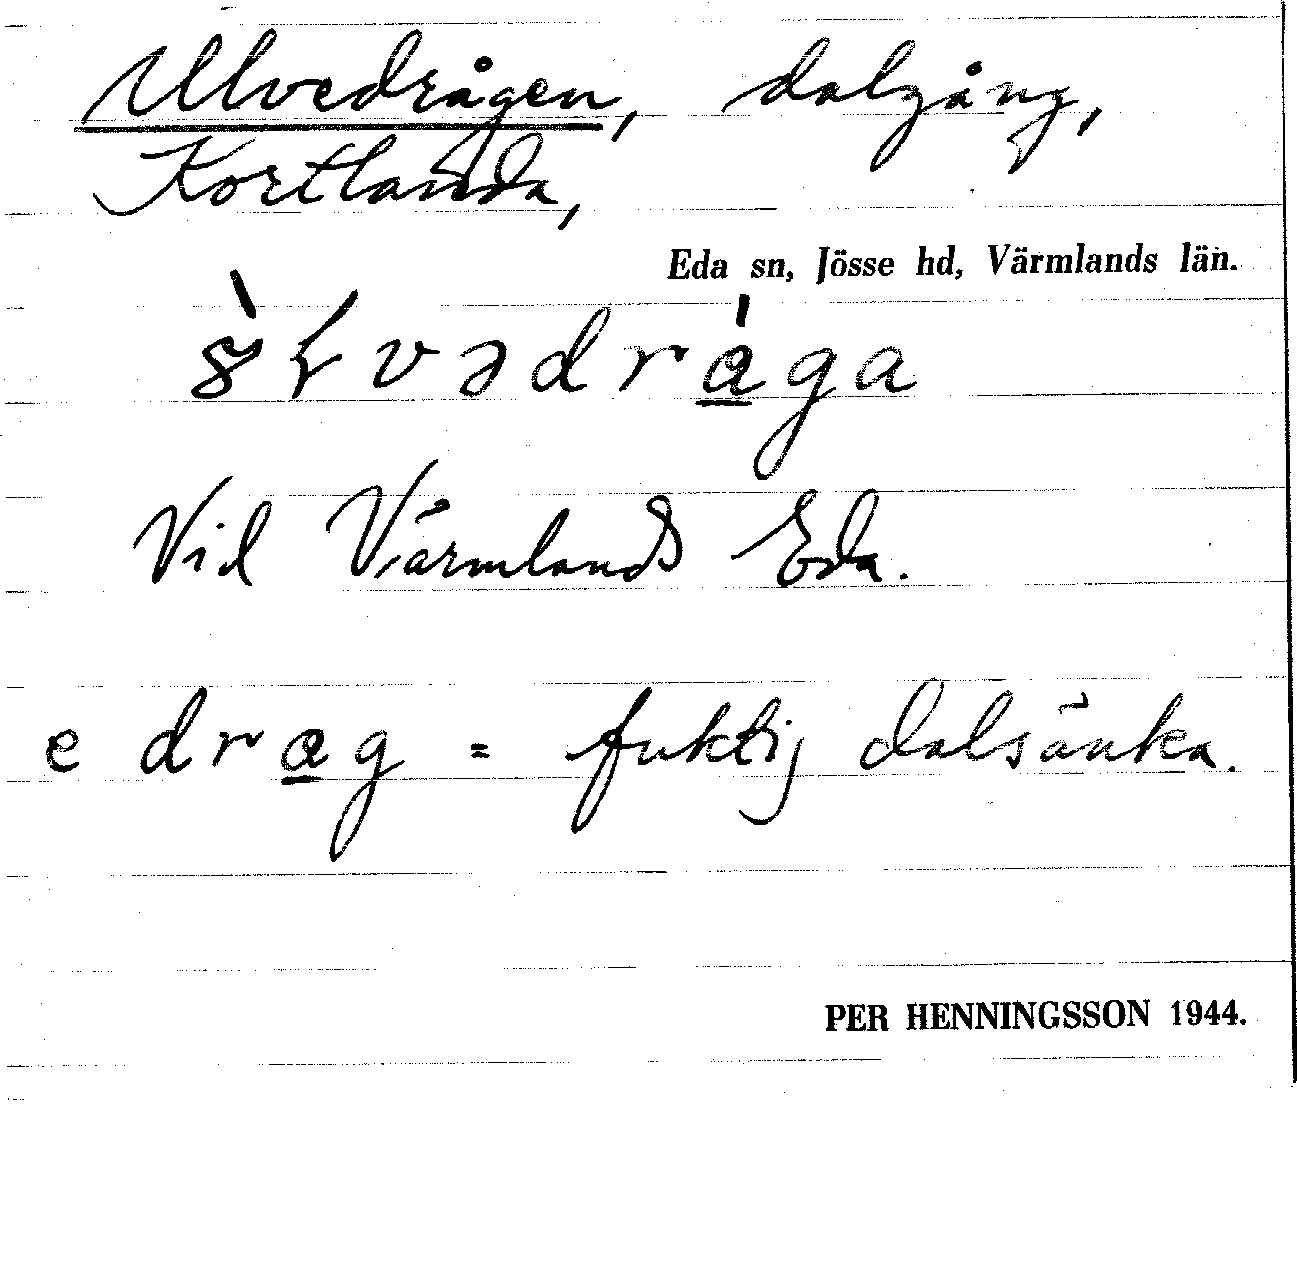 Ulvedrågen, dalgång,
Kortlanda,
Eda sn, Jösse hd, Värmlands län.
Vid Värmlands Eda.
e drag = fuktig dalsänka.
PER HENNINGSSON 1944.